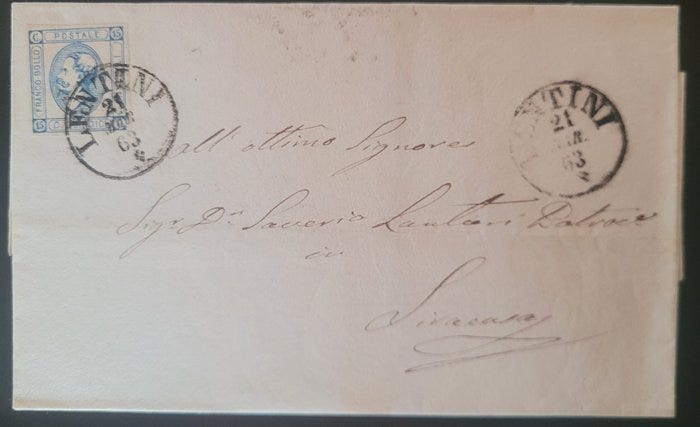 C. POSTALE 15
FRANCO BOLLO
15 C.
LENTINI
21
63
LENTINI
21
MAR.
63
all' ottimo Signore
Sigr. Dn. Saverio Lantieri
in
Siracusa